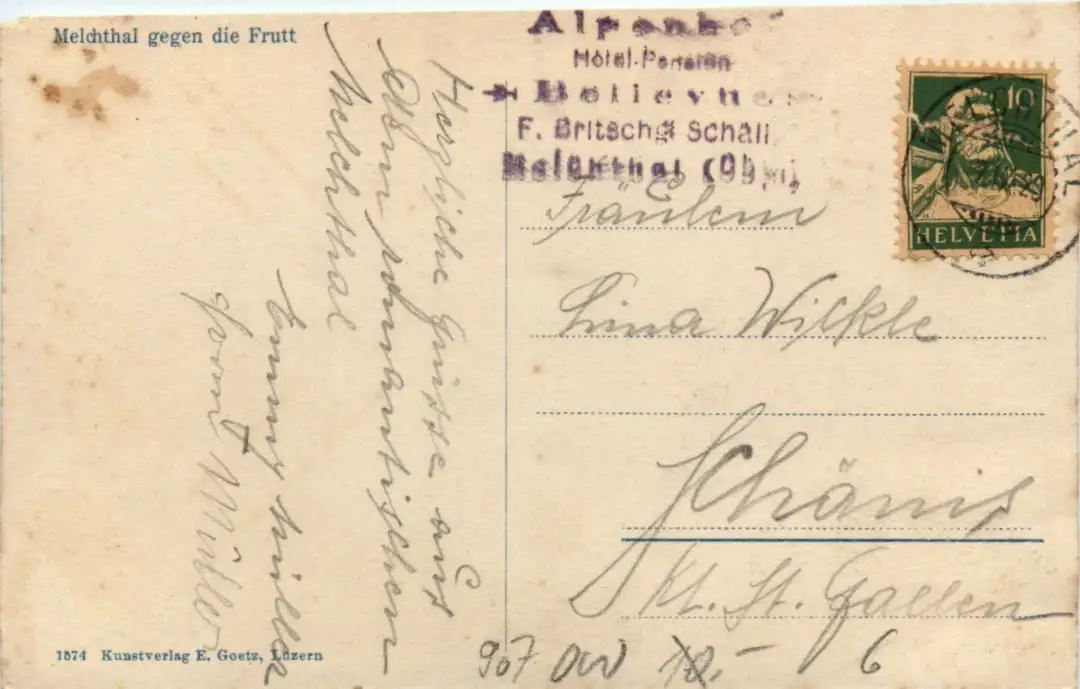 Melchthal gegen die Frutt
Alpenhof
Hôtel-Pension
Bellevue
F. Britschgi Schäli
Melchthal (Obw)
10
HELVETIA
MELCHTHAL
Herzliche Grüsse aus
dem romantischen
Melchthal
Emmy Müller
Müller
Fräulein
Lina Wilkle
Schänis
Kt. St. Gallen
1574 Kunstverlag E. Goetz, Luzern
907 10.- 6